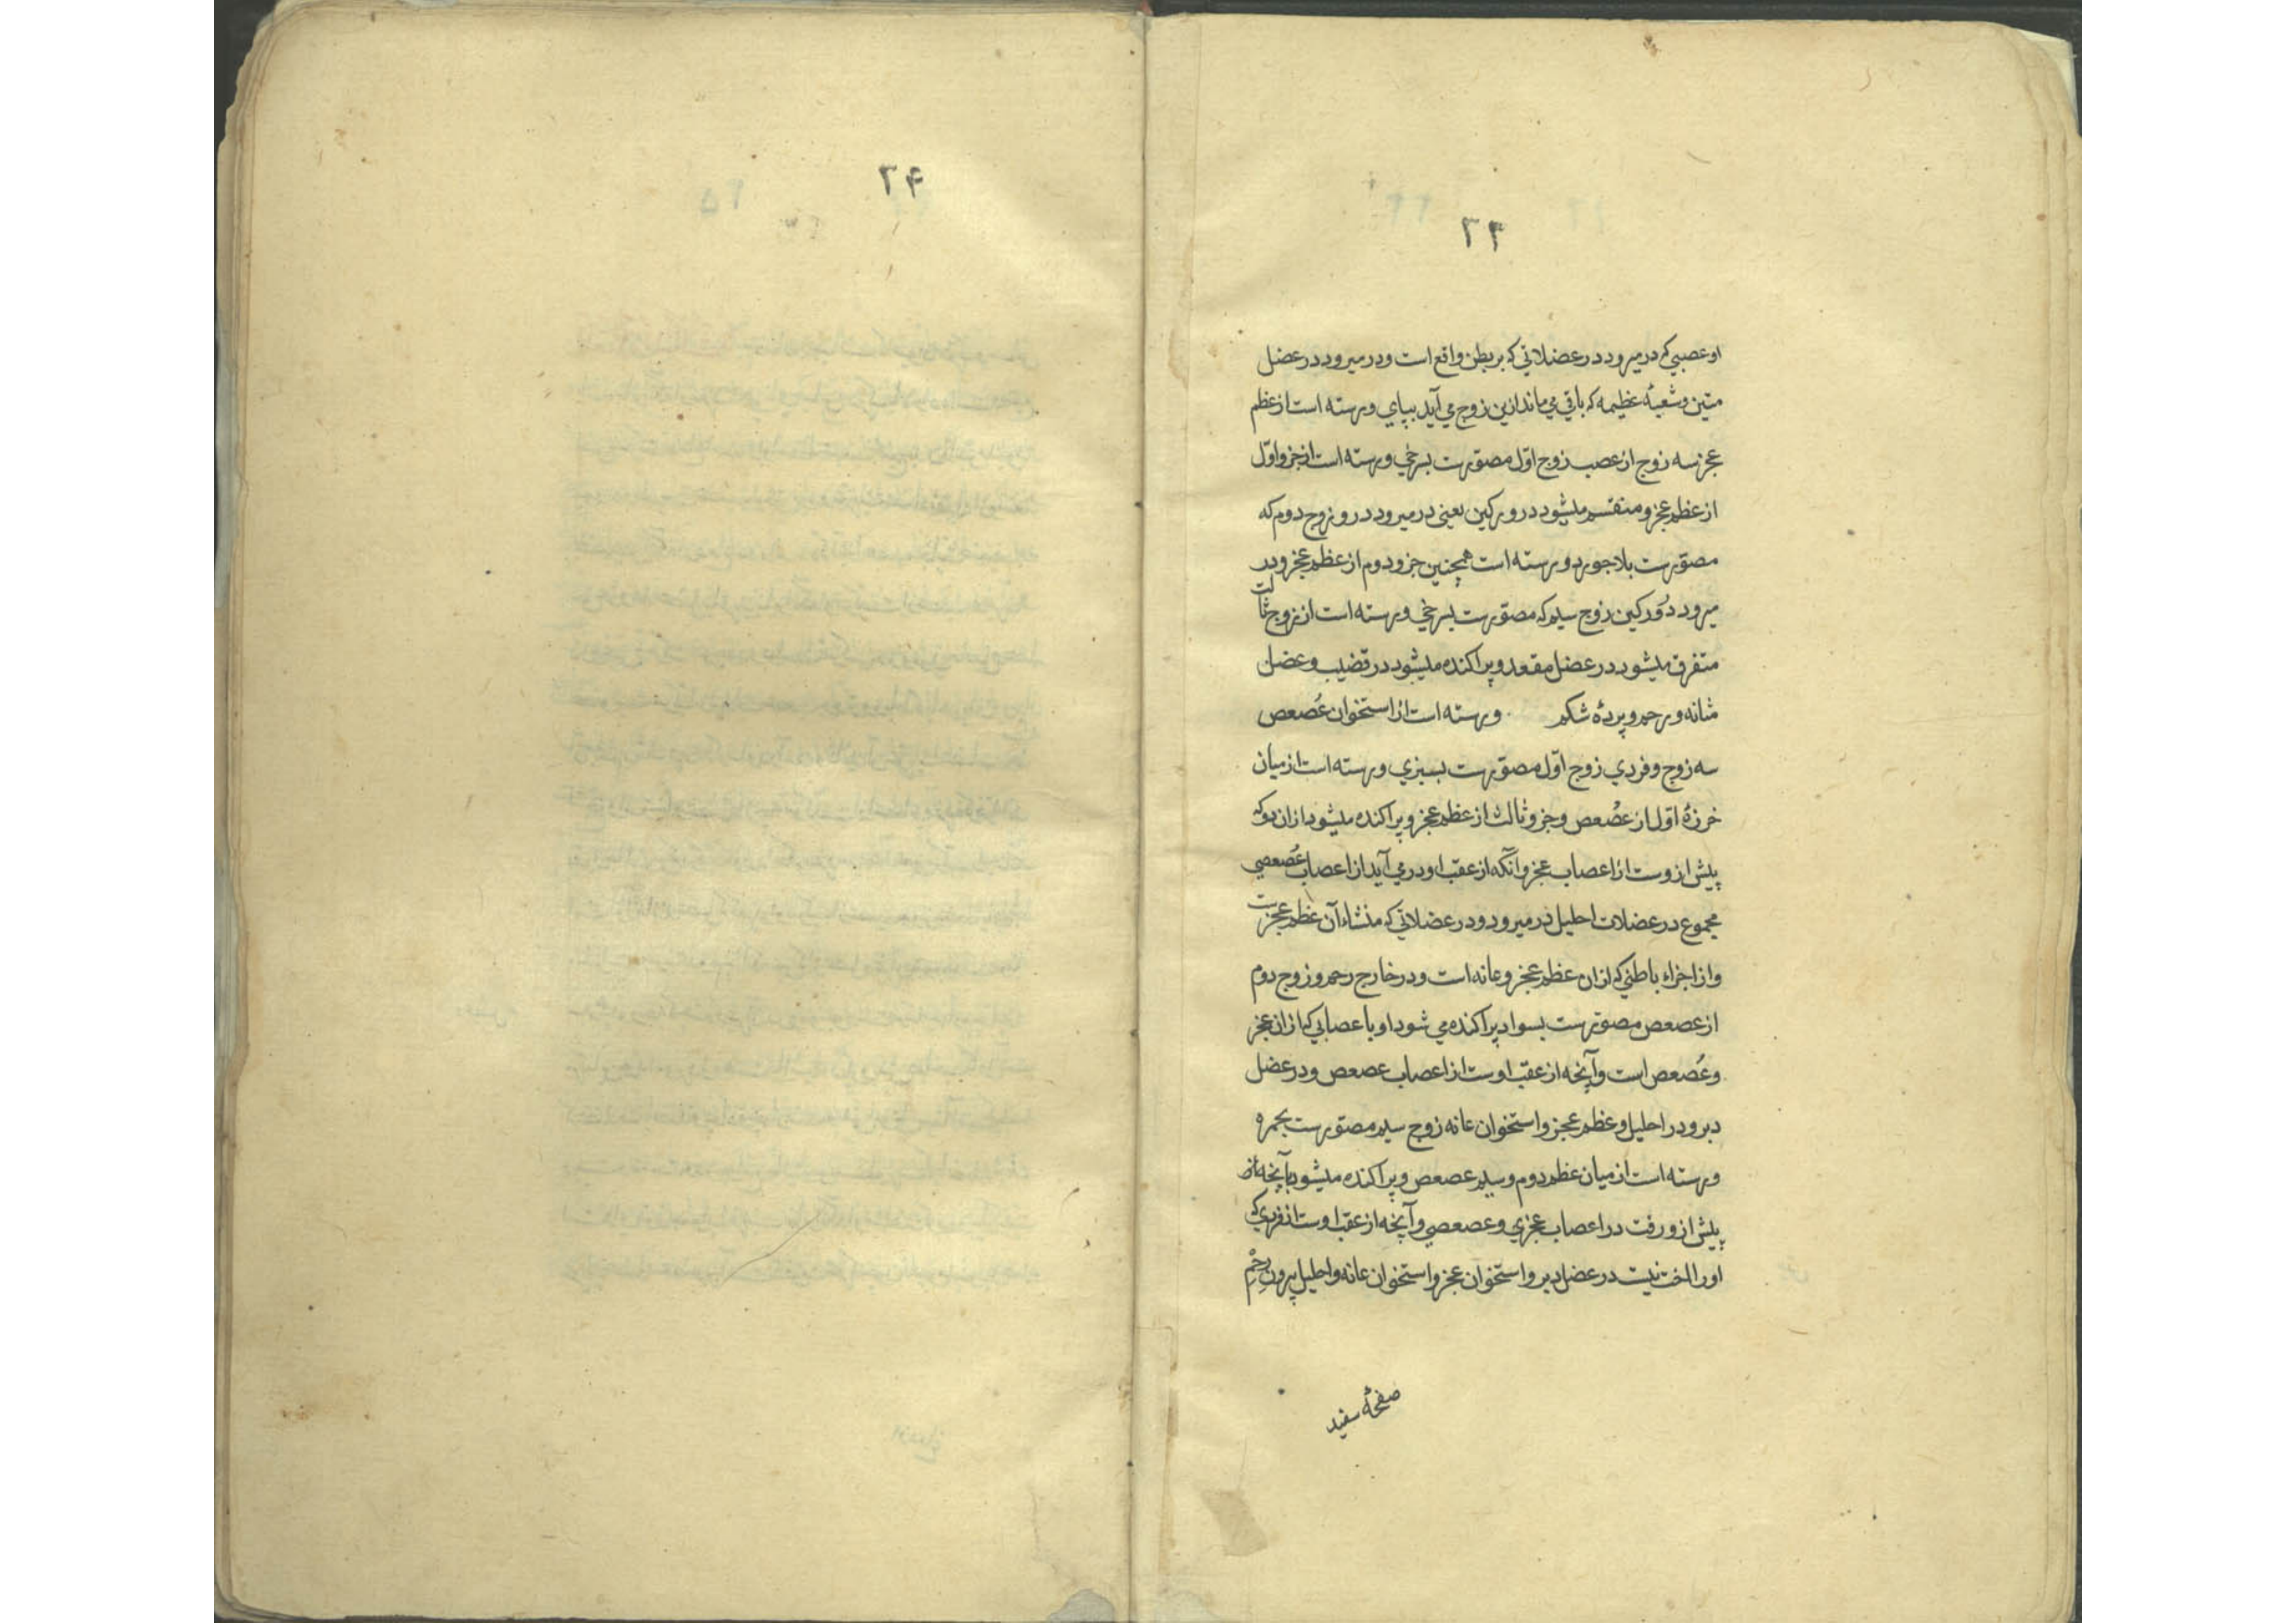 ۲۳
او عصبی که در میرود در عضلاتی که بر بطن واقع است و در میرود در عضل
متین و شعبهٔ عظیمه که باقی می‌ماند ازین زوج می‌آید بپای و رسته است از عظم
عجز سه زوج از عصب زوج اوّل مصوّرست بسرخی و رسته است از جزو اوّل
از عظم عجز و منقسم میشود در ورکین یعنی در میرود درو زوج دوم که
مصوّرست بلاجورد و رسته است همچنین جزو دوم از عظم عجز و در
میرود دَوَرکین زوج سیم که مصوّرست بسرخی و رسته است از زوج ثالت
متفرق میشود در عضل مقعد و پراکنده میشود در قضیب و عضل
مثانه و رحم و پردهٔ شکم و رسته است از استخوان عُصعص
سه زوج و فردی زوج اوّل مصوّرست بسبزی و رسته است از میان
خرزهٔ اوّل از عصُعص و جزو ثالث از عظم عجز و پراکنده میشود ازان دو که
پیش ازوست از اعصاب عجز و آنکه از عقب او در می‌آید از اعصاب عُصعصی
مجموع در عضلات احلیل در میرود و در عضلاتی که منشاء آن عظم عجزست
و از اجزاء باطنی که ازان عظم عجز و عانه است و در خارج رحم و زوج دوم
از عصعص مصوّرست بسواد پراکنده می شود او با عصابی که ازان عجز
و عُصعص است و آنچه از عقب اوست از اعصاب عصعص و در عضل
دبر و در احلیل و عظم عجز و استخوان عانه زوج سیم مصوّرست بحمره
و رسته است از میان عظم دوم و سیم عصعص و پراکنده میشود بآنچه از
پیش ازو رفت در اعصاب عجزی و عصعصی و آنچه از عقب اوست از فردی که
اورا اخت نیست در عضل دبر و استخوان عجز و استخوان عانه و احلیل بیرون رحْم
صفحهٔ سفید
۲۴